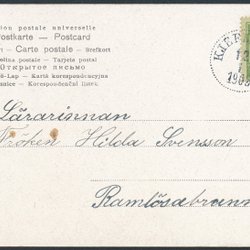 ion postale universelle
Postkarte — Postcard
rt — Carte postale — Brefkort
olina postale — Tarjeta postal
Открытое письмо
-Lap — Karta korespondencyjna
nice — Korespondenční lístek.
KJEF
12
1903
Lärarinnan
Fröken Hilda Svensson
Ramlösabrunn